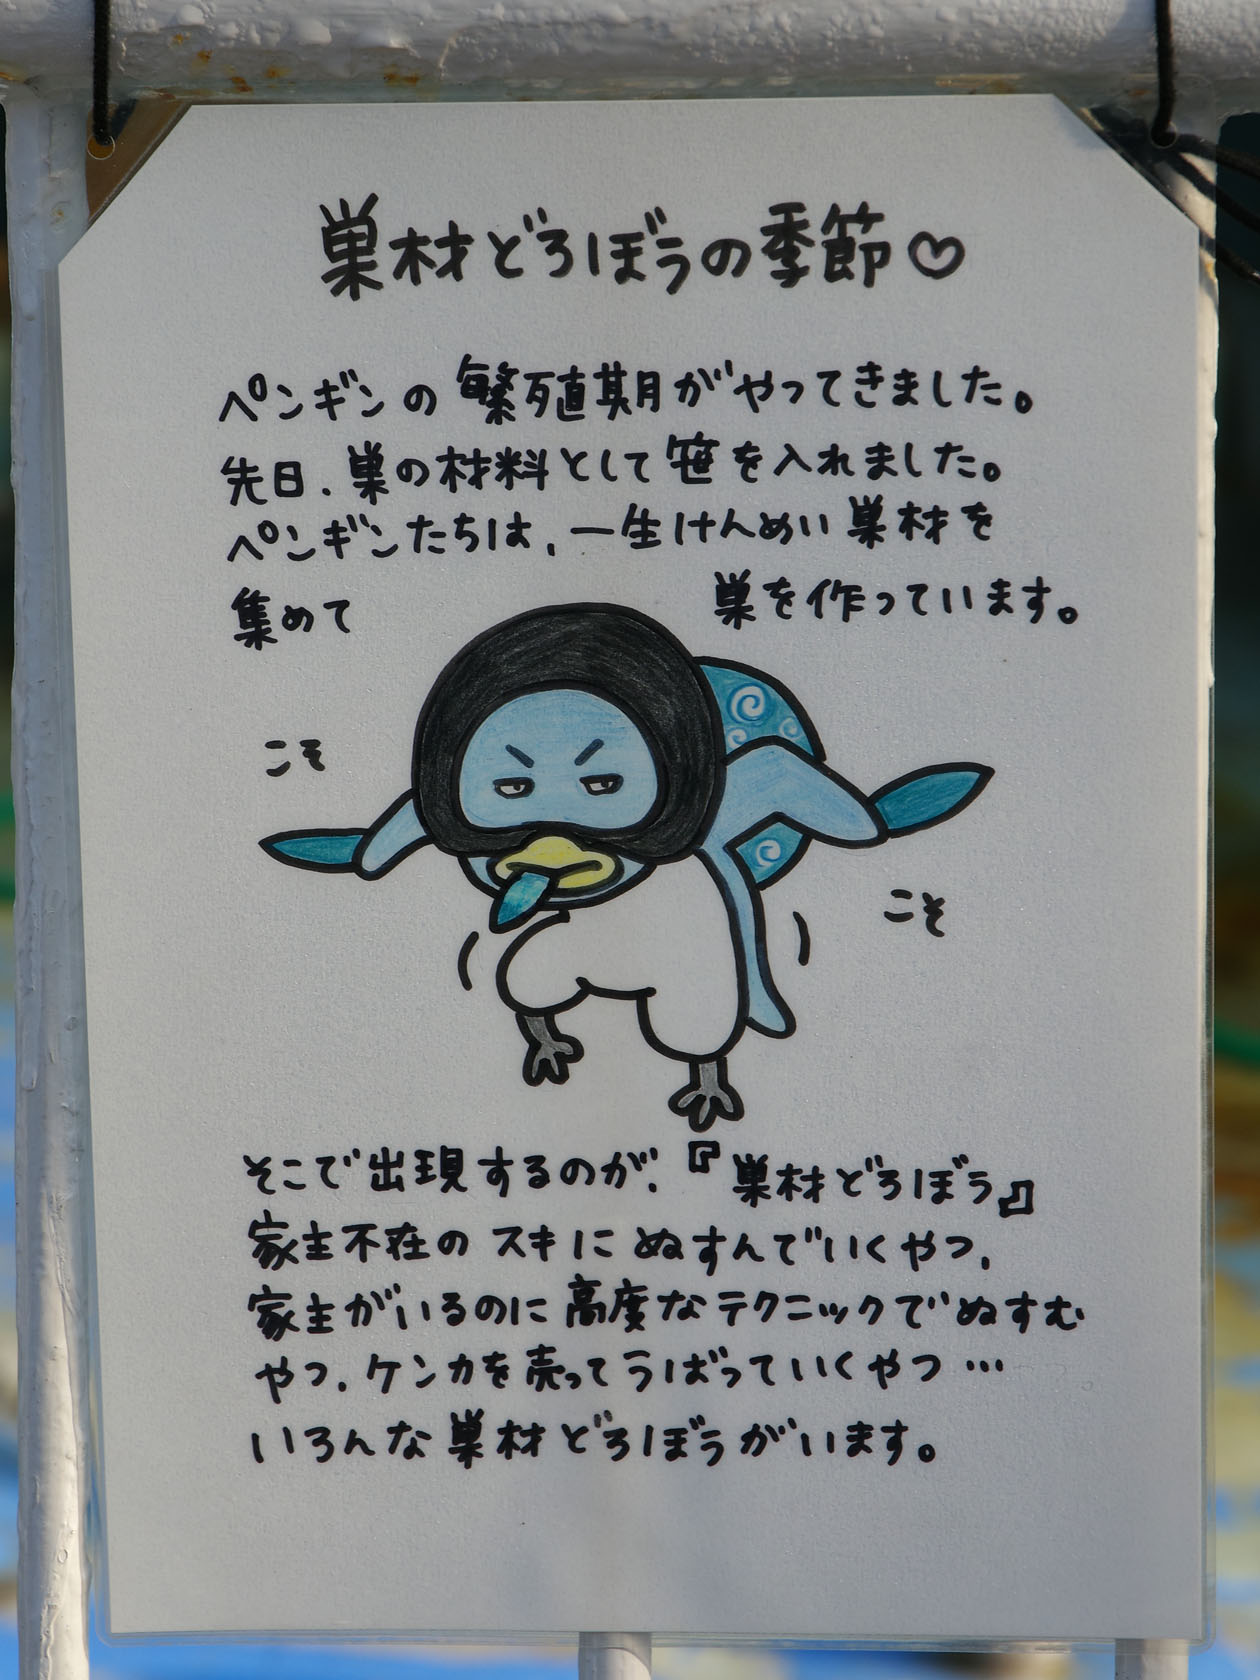 巣材どろぼうの季節♡
ペンギンの繁殖期がやってきました。
先日、巣の材料として笹を入れました。
ペンギンたちは、一生けんめい巣材を
集めて 巣を作っています。
こそ
こそ
そこで出現するのが、『巣材どろぼう』
家主不在のスキにぬすんでいくやつ、
家主がいるのに高度なテクニックでぬすむ
やつ、ケンカを売ってうばっていくやつ…
いろんな巣材どろぼうがいます。